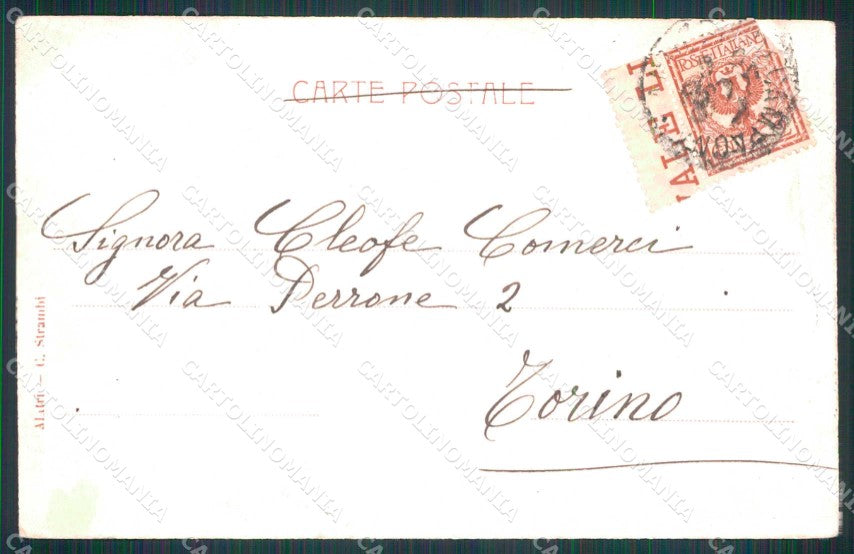 CARTE POSTALE
POSTE ITALIANE
ALE LI
Signora Cleofe Comerci
Via Perrone 2
Torino
Alatri — C. Strambi
CARTOLINOMANIA